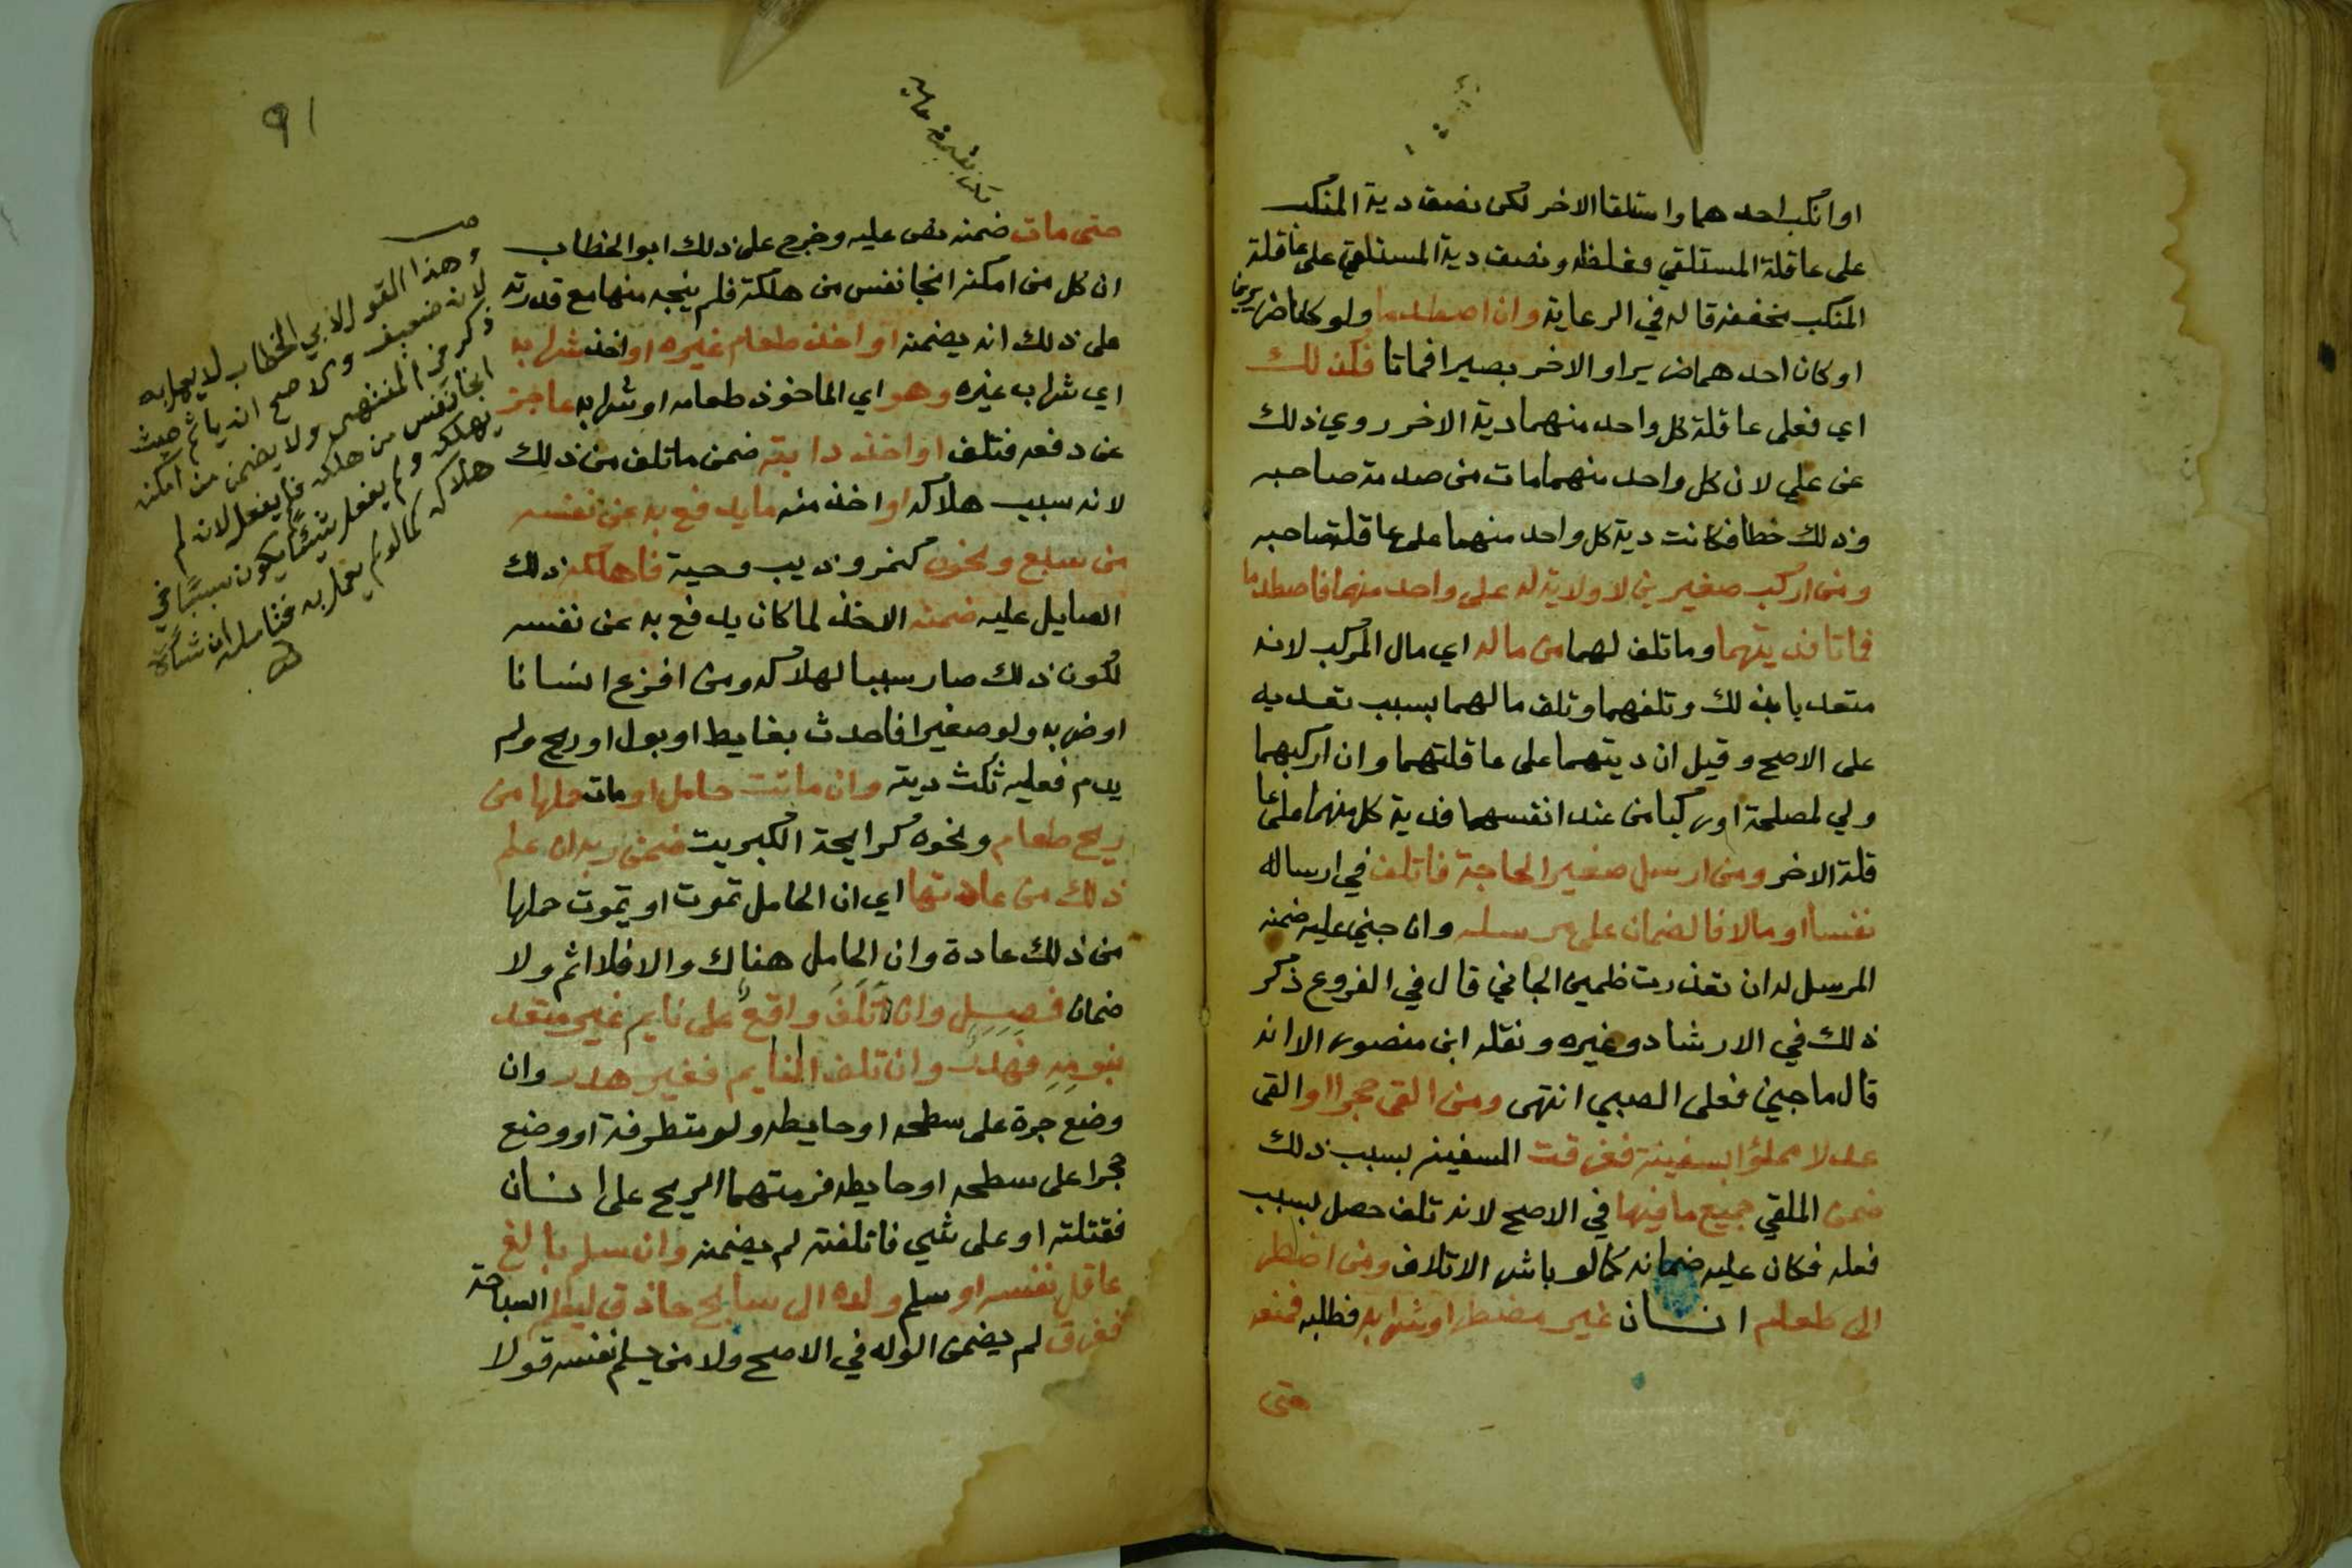 او انكب احدهما واستلقا الاخر لكن نصف دية المنكب
على عاقلة المستلقي مغلظه ونصف دية المستلقي على عاقلة
المنكب مخففه قاله في الرعاية وان اصطدما ولو كانا ضريرين
او كان احدهما ضريرا والاخر بصيرا فماتا فكذلك
اي فعلى عاقلة كل واحد منهما دية الاخر روي ذلك
عن علي لان كل واحد منهما مات من صدمة صاحبه
وذلك خطا فكانت دية كل واحد منهما على عاقلة صاحبه
ومن اركب صغيرين لا ولاية له على واحد منهما فاصطدما
فماتا فديتهما وما تلف لهما من ماله اي مال المركب لانه
متعد بذلك وتلفهما وتلف مالهما بسبب تعديه
على الاصح وقيل ان ديتهما على عاقلتهما وان اركبهما
ولي لمصلحة او ركبا من عند انفسهما فدية كل منهما على عا
قلة الاخر ومن ارسل صغيرا لحاجة فاتلف في ارساله
نفسا او مالا فالضمان على مرسله وان جني عليه ضمنه
المرسل له ان تعذر تضمين الجاني قال في الفروع ذكر
ذلك في الارشاد وغيره ونقله ابن منصور الا انه
قال ما جنى فعلى الصبي انتهى ومن القى حجرا او القى
عدلا مملؤا بسفينة فغرقت السفينة بسبب ذلك
ضمن الملقي جميع ما فيها في الاصح لانه تلف حصل بسبب
فعله فكان عليه ضمانه كما لو باشر الاتلاف ومن اضطر
الى طعام انسان غير مضطر او شرابه فطلبه فمنعه
حتى
91
حتى مات ضمنه نص عليه وخرج على ذلك ابو الخطاب
ان كل من امكنه انجا نفس من هلكة فلم ينجه منها مع قدرته
على ذلك انه يضمنه او اخذ طعام غيره او اخذ شرابه
اي شراب غيره وهو اي الماخوذ طعامه او شرابه عاجز
عن دفعه فتلف او اخذ دابته ضمن ما تلف من ذلك
لانه سبب هلاكه او اخذ منه ما يدفع به عن نفسه
من سبع ونحوه كنمر وذيب وحية فاهلكه ذلك
الصايل عليه ضمنه الاخذ لما كان يدفع به عن نفسه
لكون ذلك صار سببا لهلاكه ومن افزع انسانا
او ضربه ولو صغيرا فاحدث بغايط او بول او ريح ولم
يدم فعليه ثلث ديته وان ماتت حامل او مات حملها من
ريح طعام ونحوه كرايحة الكبريت ضمن ربه ان علم
ذلك من عادتها اي ان الحامل تموت او يموت حملها
من ذلك عادة وان الحامل هناك والا فلا اثم ولا
ضمان فصل وان تلف واقع على نايم غير متعد
بنومه فهدر وان تلف النايم فغير هدر وان
وضع جرة على سطحه او حايطه ولو متطرفة او وضع
حجرا على سطحه او حايطه فرمتهما الريح على انسان
فقتلته او على شي فاتلفته لم يضمنه وان سلم بالغ
عاقل نفسه او سلم ولده الى سابح حاذق ليعلمه السباحة
فغرق لم يضمن الولد في الاصح ولا من سلم نفسه قولا
وهذا القول لابي الخطاب لا يعمل به
لانه ضعيف والاصح انه ياثم حيث
ذكر في المنتهى ولا يضمن من امكنه
انجا نفس من هلكة فلم يفعل لانه لم
يهلكه ولم يفعل شيئا يكون سببا في
هلاكه كما لو لم يعلم به فتامله ان شئت